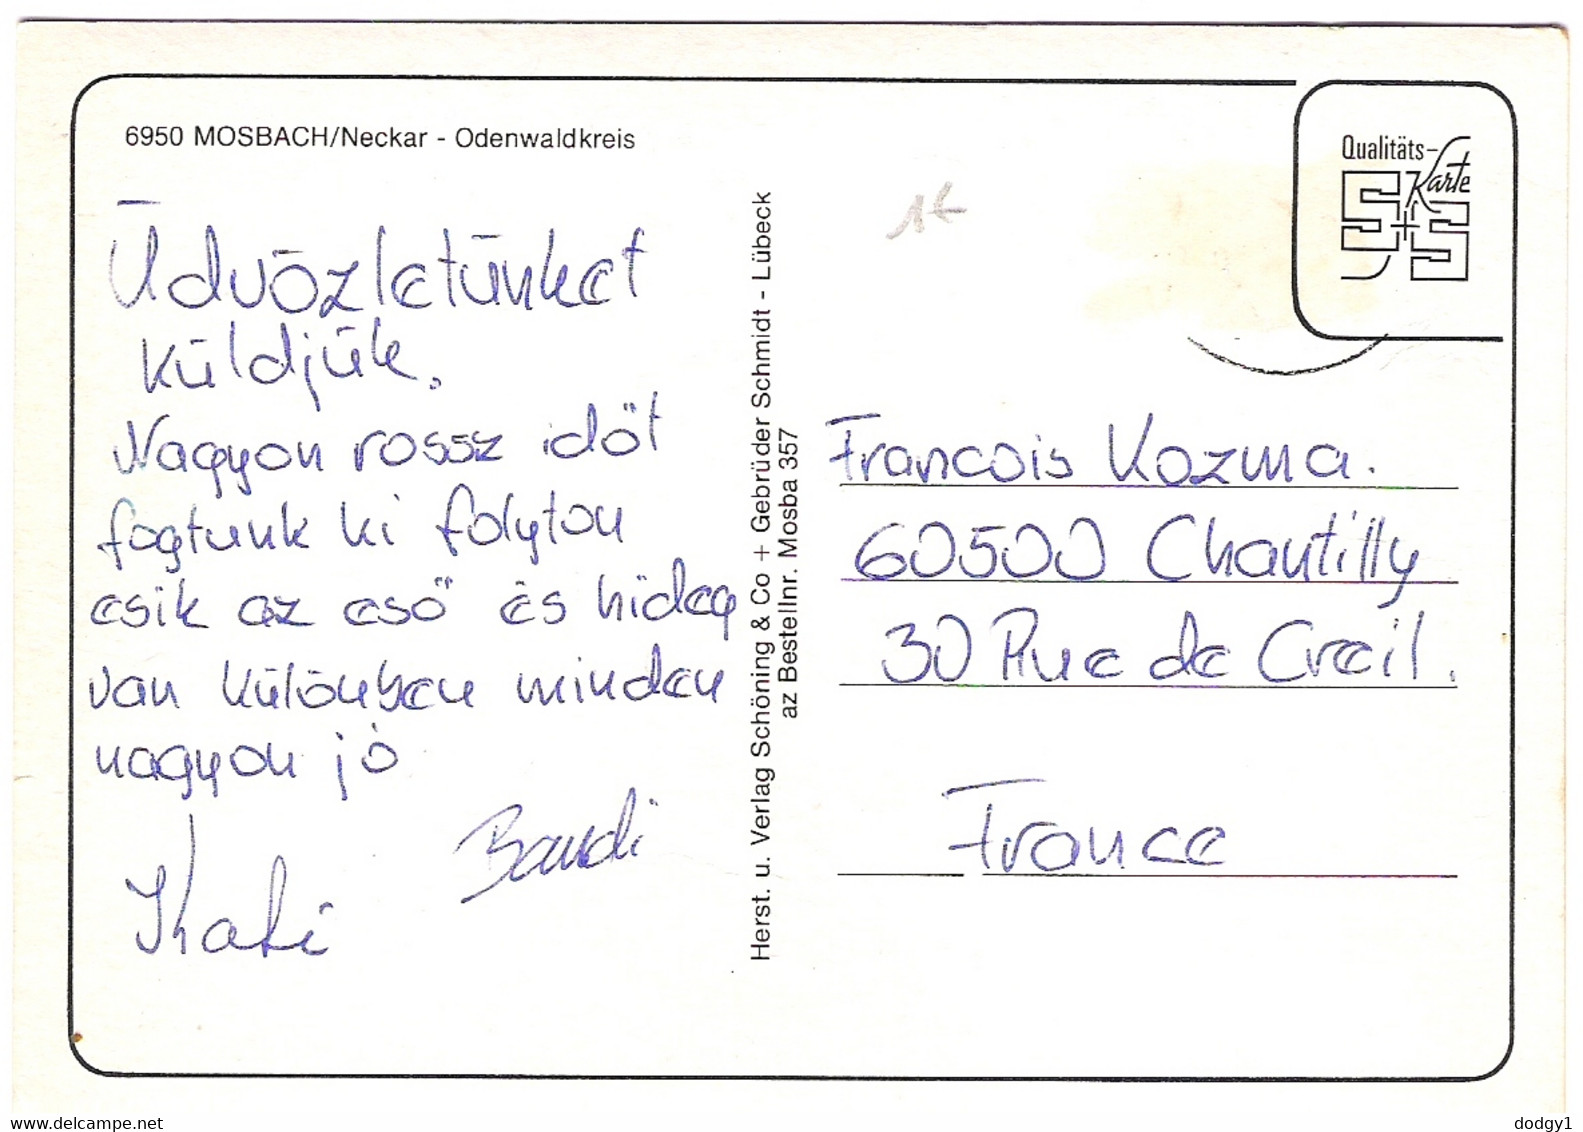 6950 MOSBACH/Neckar - Odenwaldkreis
Üdvözletünket
küldjük.
Nagyon rossz időt
fogtunk ki folyton
esik az eső és hideg
van különben minden
nagyon jó
Bandi
Kati
Herst. u. Verlag Schöning & Co + Gebrüder Schmidt - Lübeck
az Bestellnr. Mosba 357
Qualitäts-
Karte
S+S
Francois Kozma.
60500 Chantilly
30 Rue de Creil.
France
delcampe.net
dodgy1